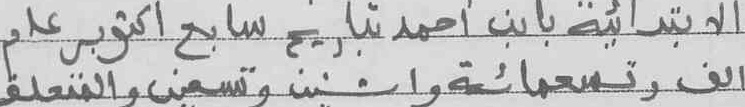 الابتدائية بابن احمد بتاريخ سابع اكتوبر عام
الف وتسعمائة واثنين وتسعين والمتعلق